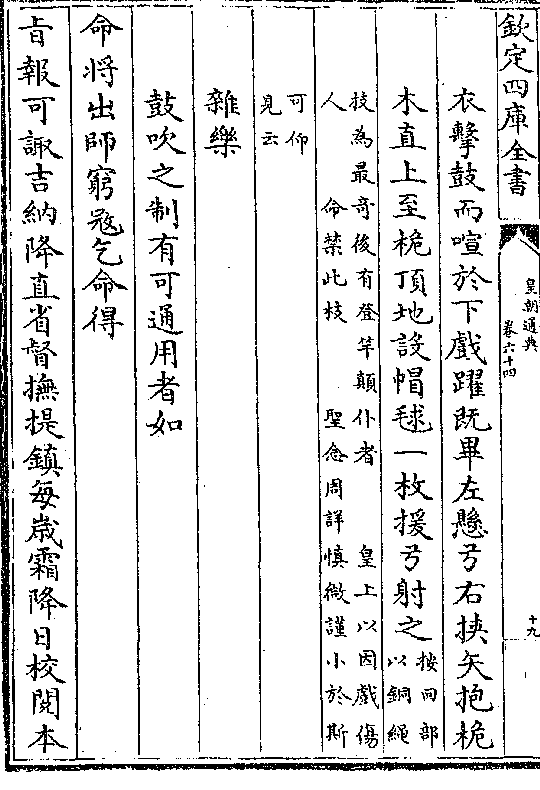 欽定四庫全書
皇朝通典
卷六十四
十九
衣擊鼓而喧於下戲躍既畢左懸弓右挾矢抱桅
木直上至桅頂地設帽毬一枚援弓射之按回部
以銅繩
技為最奇後有登竿顛仆者　皇上以因戲傷
人　命禁此技　聖念周詳慎微謹小於斯
可仰
見云
雜樂
鼓吹之制有可通用者如
命將出師窮寇乞命得
旨報可諏吉納降直省督撫提鎮每歲霜降日校閱本